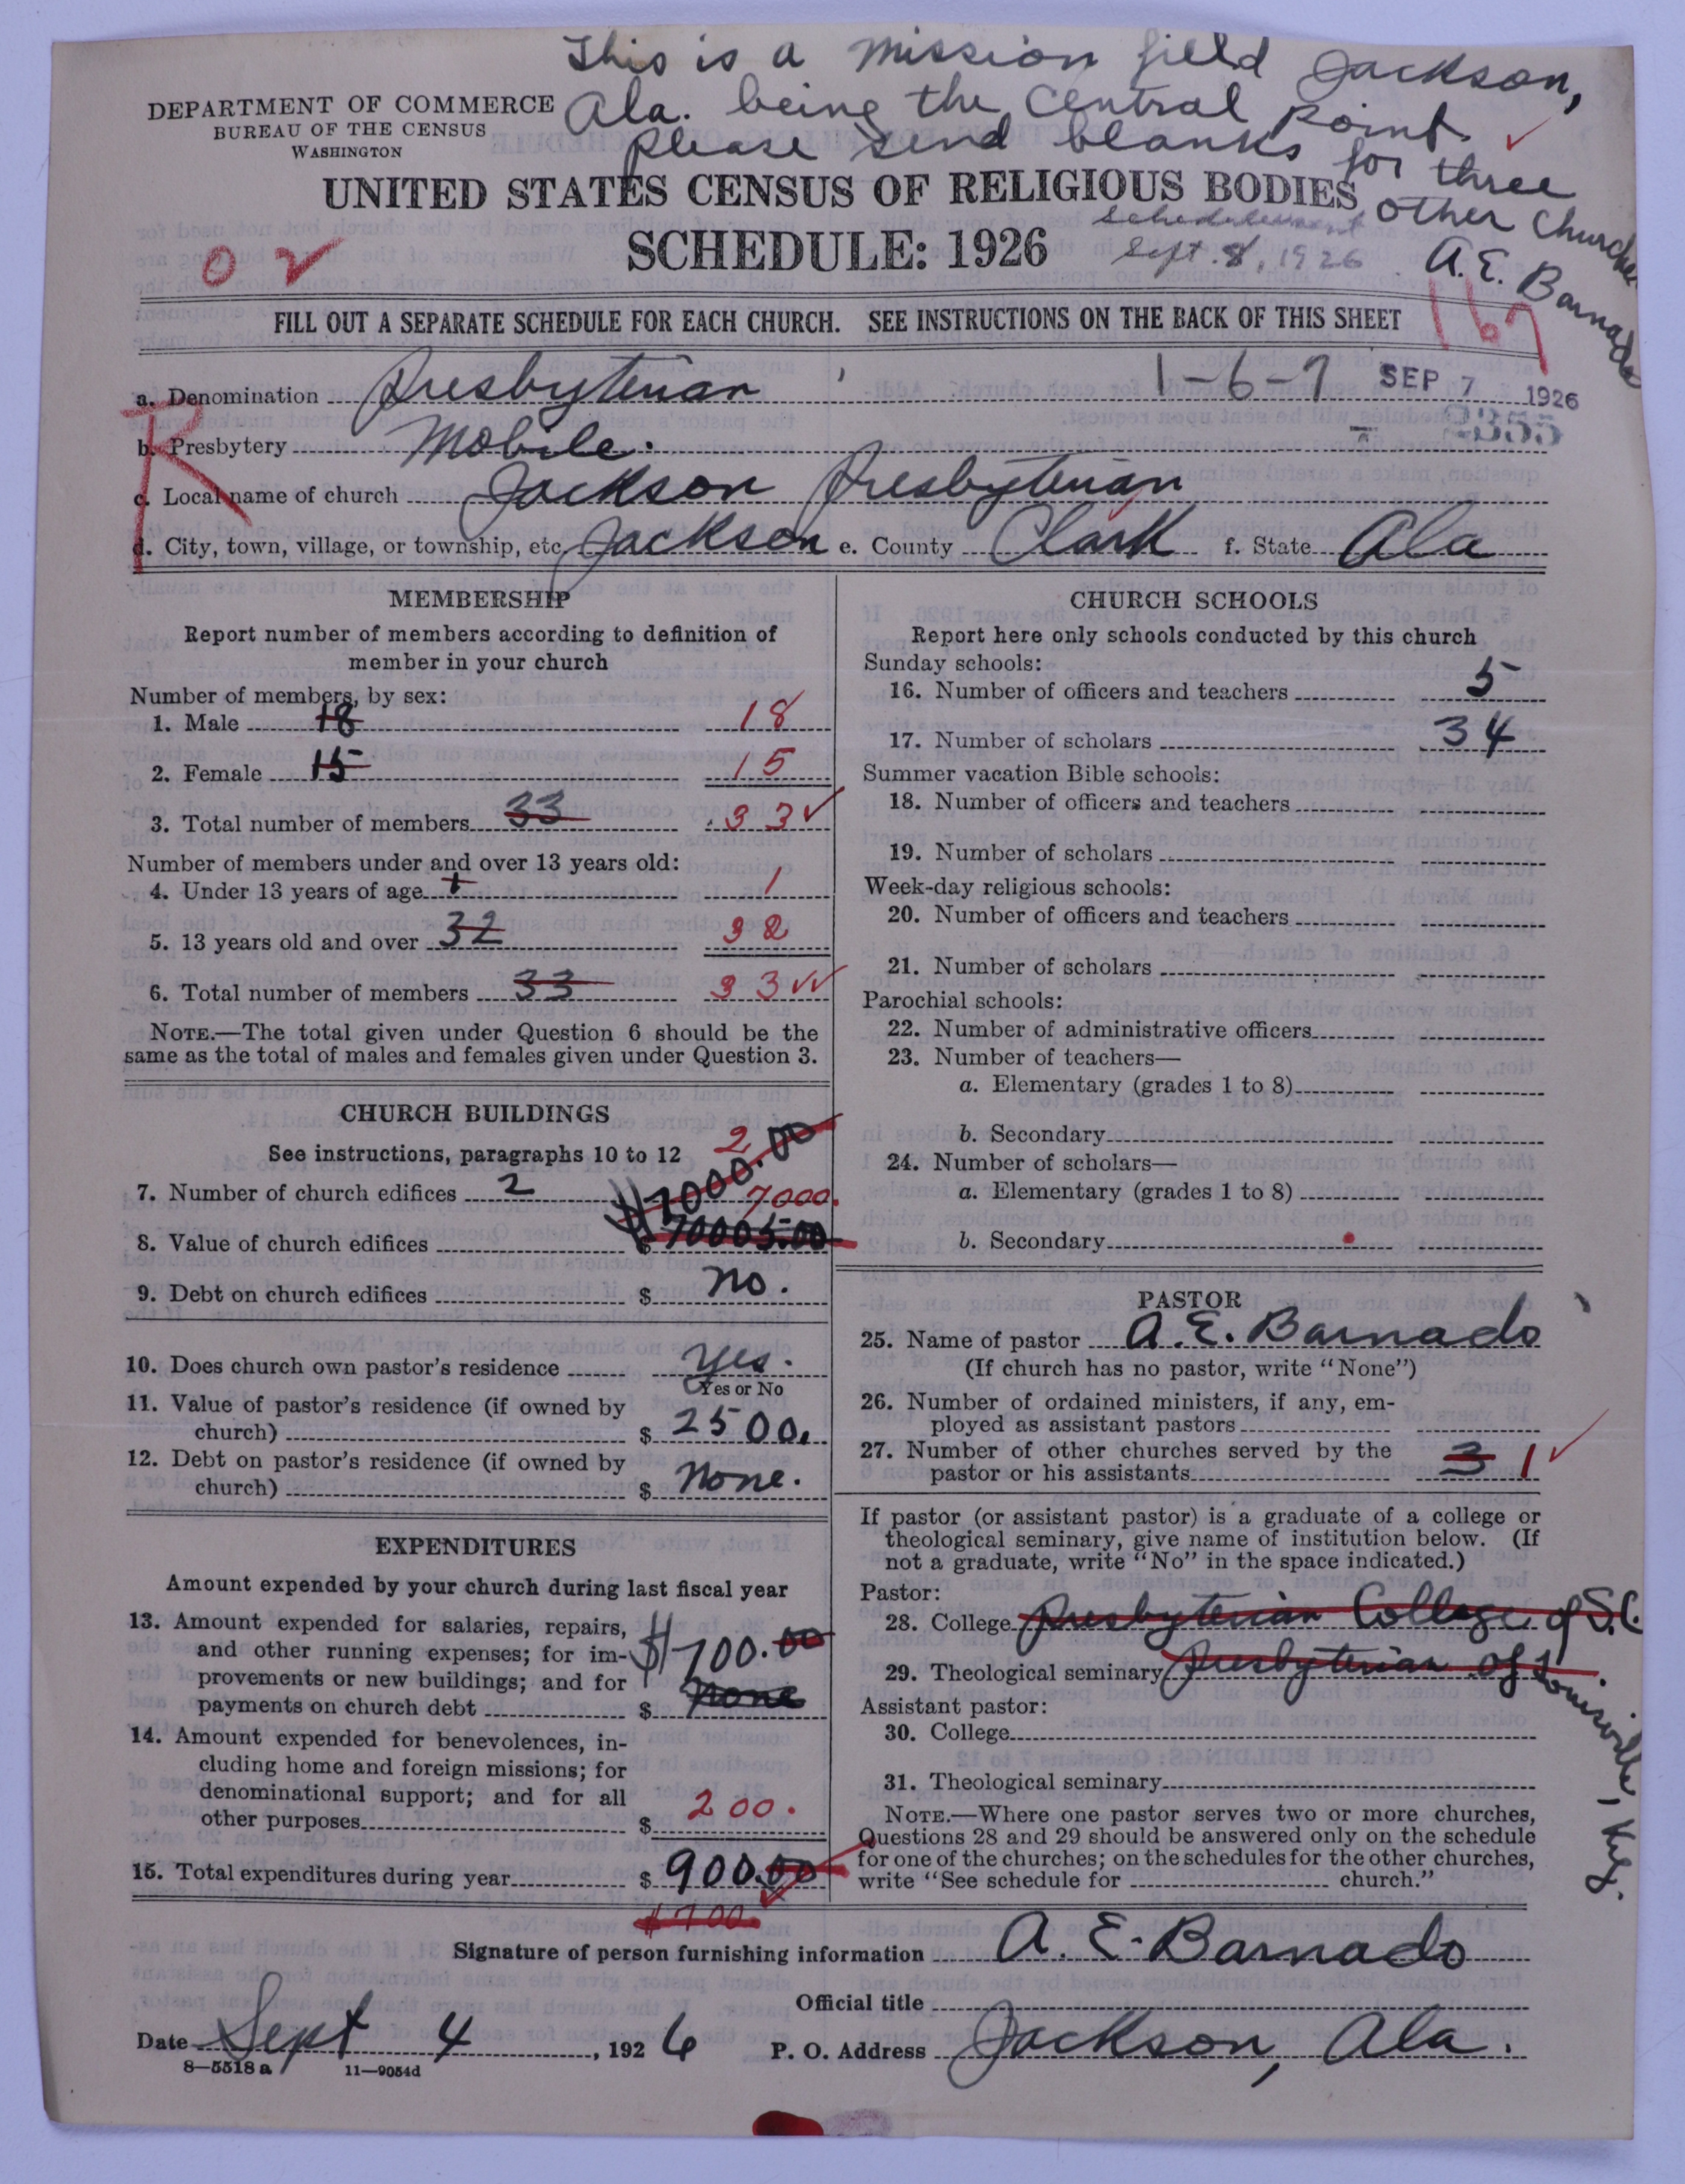 This is a mission field Jackson,
Ala. being the Central Point.
Please send blanks for three
other Churches
A. E. Barnado
DEPARTMENT OF COMMERCE
BUREAU OF THE CENSUS
WASHINGTON
UNITED STATES CENSUS OF RELIGIOUS BODIES
SCHEDULE: 1926
Sept. 8, 1926
167
FILL OUT A SEPARATE SCHEDULE FOR EACH CHURCH. SEE INSTRUCTIONS ON THE BACK OF THIS SHEET
a. Denomination Presbyterian 1-6-7 SEP 7 1926
b. Presbytery Mobile.
R
c. Local name of church Jackson Presbyterian
d. City, town, village, or township, etc. Jackson e. County Clark f. State Ala
MEMBERSHIP
Report number of members according to definition of
member in your church
Number of members, by sex:
1. Male 18 18
2. Female 15 15
3. Total number of members 33 33
Number of members under and over 13 years old:
4. Under 13 years of age 1 1
5. 13 years old and over 32 32
6. Total number of members 33 33
NOTE.—The total given under Question 6 should be the
same as the total of males and females given under Question 3.
CHURCH BUILDINGS
See instructions, paragraphs 10 to 12 2
7. Number of church edifices 2 $7000.00
7000.
8. Value of church edifices $ 70005.00
9. Debt on church edifices $ No.
10. Does church own pastor's residence Yes.
Yes or No
11. Value of pastor's residence (if owned by
church) $ 2500.
12. Debt on pastor's residence (if owned by
church) $ None.
EXPENDITURES
Amount expended by your church during last fiscal year
13. Amount expended for salaries, repairs,
and other running expenses; for im- $700.00
provements or new buildings; and for
payments on church debt $ none
14. Amount expended for benevolences, in-
cluding home and foreign missions; for
denominational support; and for all
other purposes $ 200.
15. Total expenditures during year $ 900.00
$700.
CHURCH SCHOOLS
Report here only schools conducted by this church
Sunday schools:
16. Number of officers and teachers 5
17. Number of scholars 34
Summer vacation Bible schools:
18. Number of officers and teachers
19. Number of scholars
Week-day religious schools:
20. Number of officers and teachers
21. Number of scholars
Parochial schools:
22. Number of administrative officers
23. Number of teachers—
a. Elementary (grades 1 to 8)
b. Secondary
24. Number of scholars—
a. Elementary (grades 1 to 8)
b. Secondary
PASTOR
25. Name of pastor A. E. Barnado
(If church has no pastor, write "None")
26. Number of ordained ministers, if any, em-
ployed as assistant pastors
27. Number of other churches served by the
pastor or his assistants 3 1
If pastor (or assistant pastor) is a graduate of a college or
theological seminary, give name of institution below. (If
not a graduate, write "No" in the space indicated.)
Pastor:
28. College Presbyterian College of S.C.
29. Theological seminary Presbyterian of Louisville, Ky.
Assistant pastor:
30. College
31. Theological seminary
NOTE.—Where one pastor serves two or more churches,
Questions 28 and 29 should be answered only on the schedule
for one of the churches; on the schedules for the other churches,
write "See schedule for church."
Signature of person furnishing information A. E. Barnado
Official title
Date Sept 4, 1926 P. O. Address Jackson, Ala.
8—5518 a 11—9054d